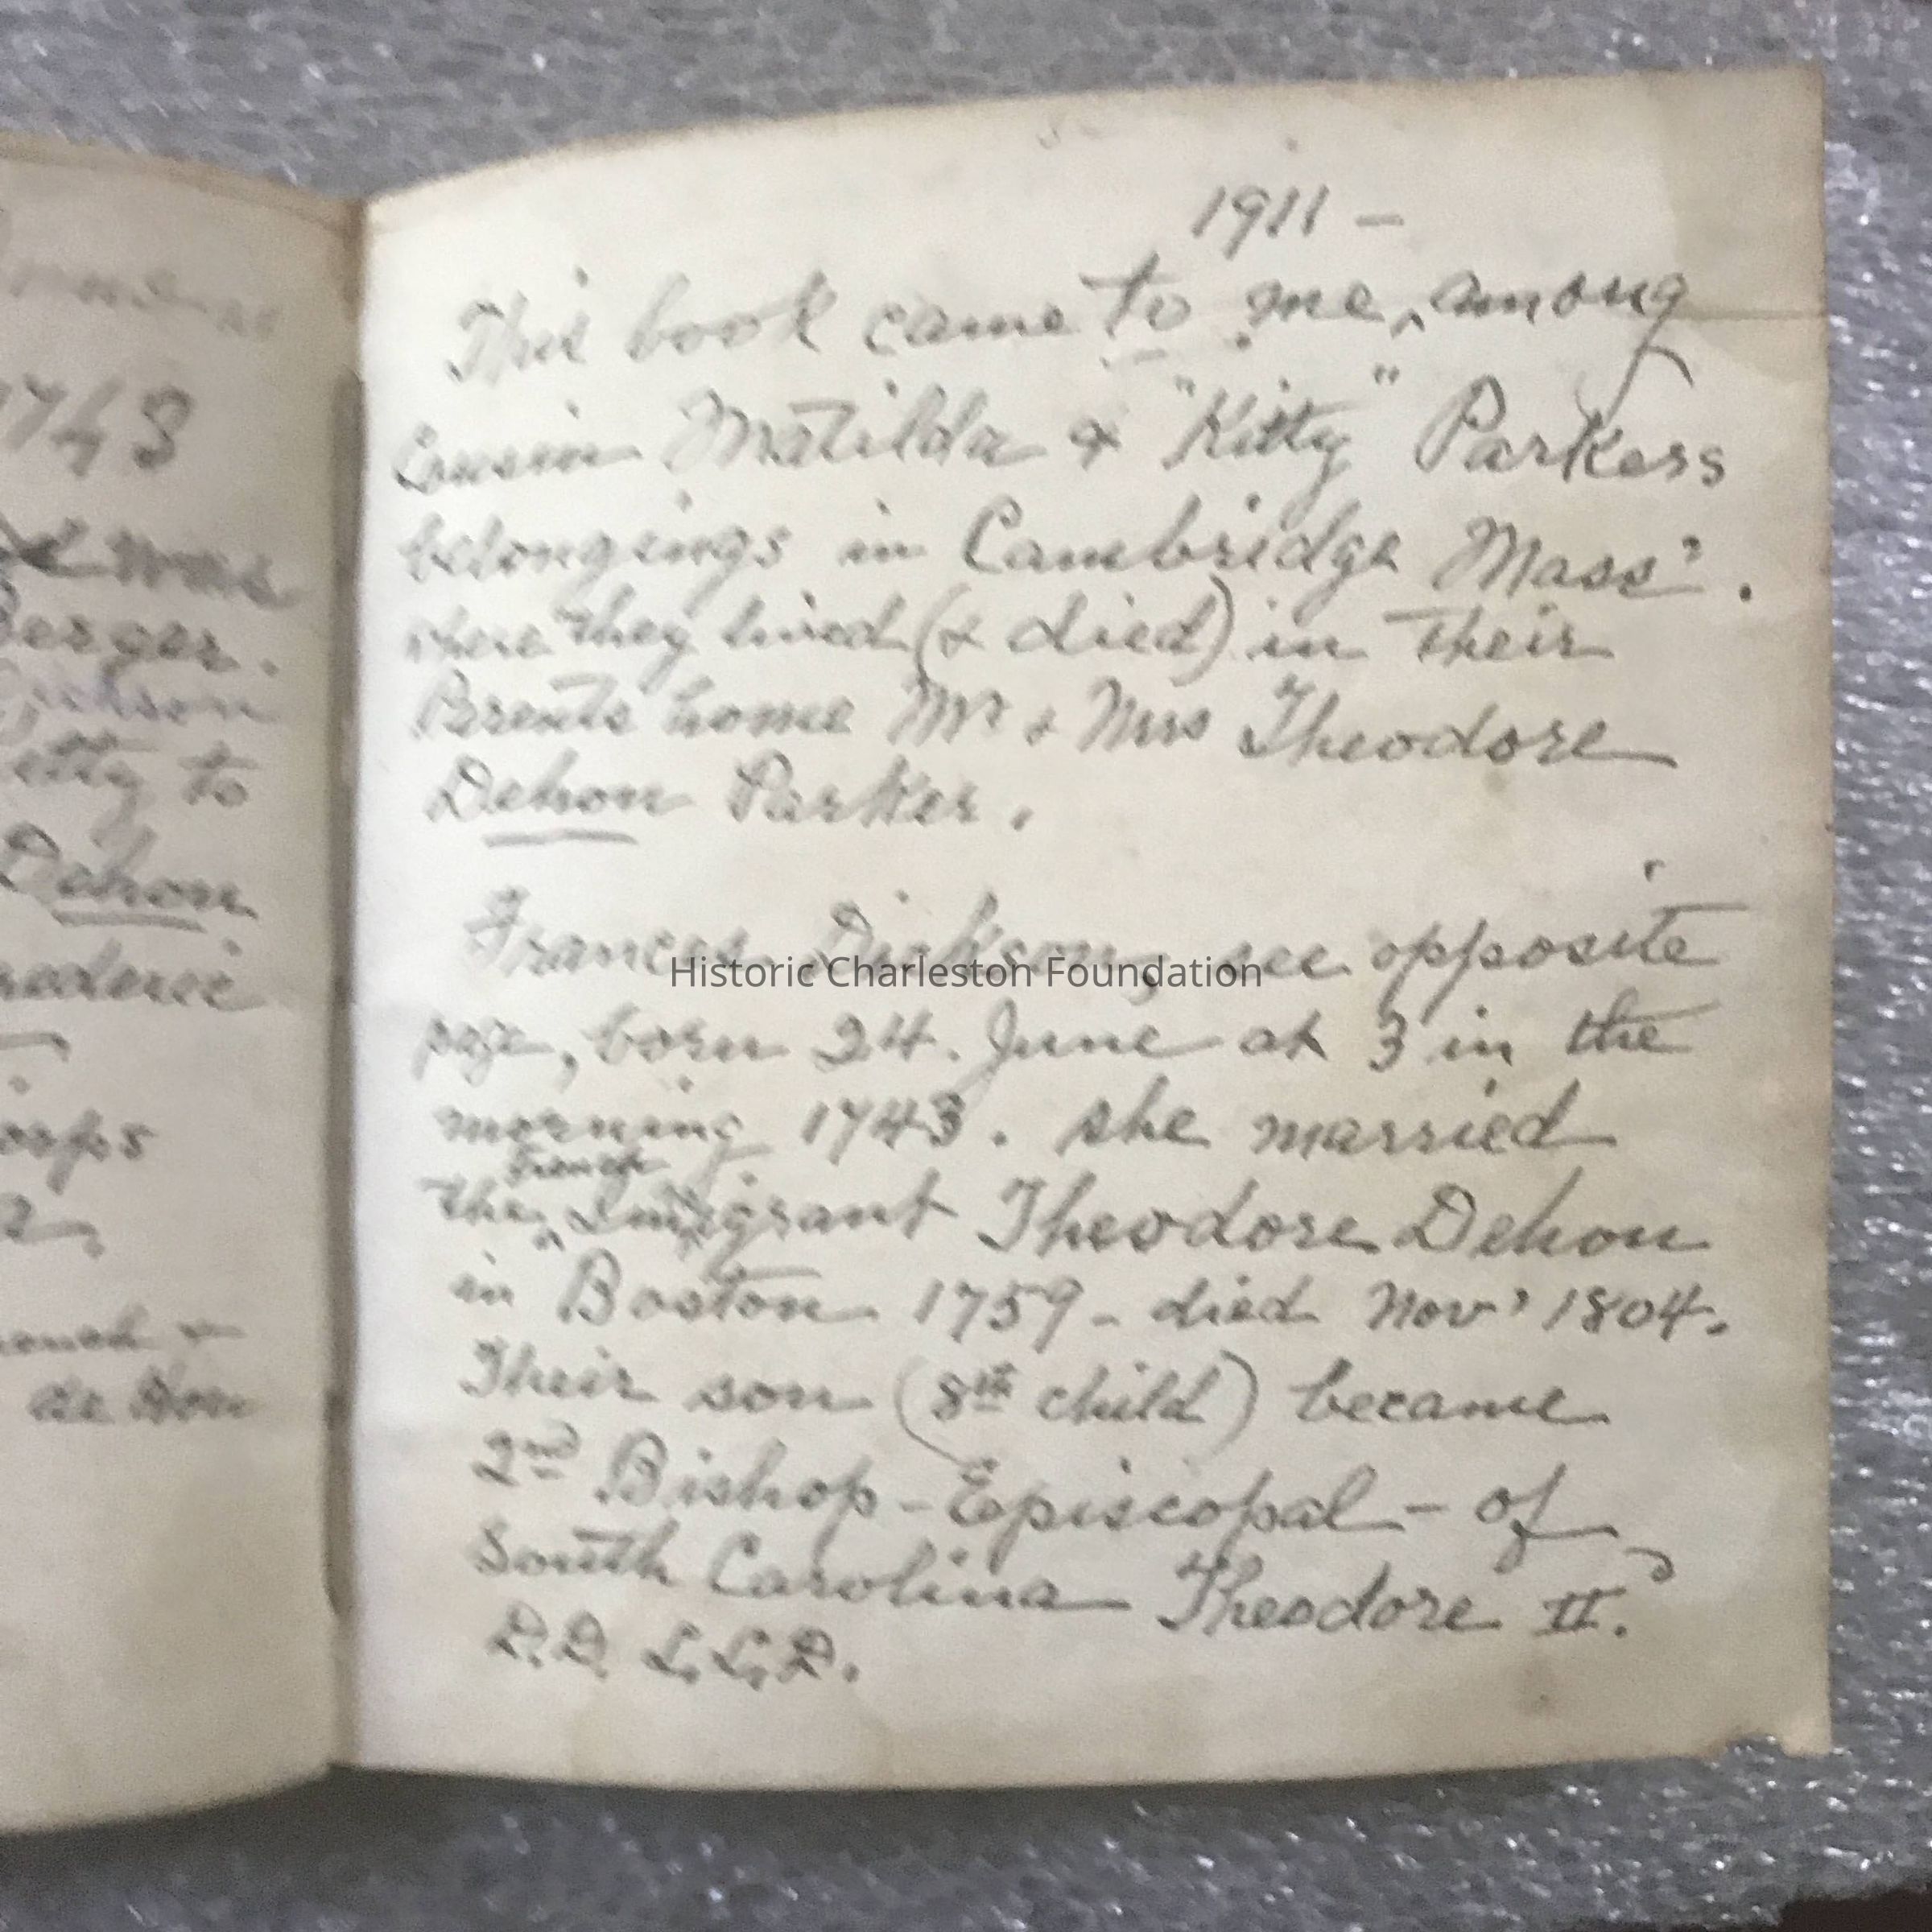 1743
was
Berger.
to
Dehon
de Hon
1911 –
This book came to me, among
Cousin Matilda & "Kitty" Parkers
belongings in Cambridge Mass'.
where they lived (& died) in their
Parents home Mr & Mrs Theodore
Dehon Parker.
Frances Dickson, see opposite
page, born 24. June at 3 in the
morning 1743. she married
French
the ^ Immigrant Theodore Dehon
in Boston 1759 – died Nov' 1804.
Their son (8th child) became
2nd Bishop – Episcopal – of
South Carolina Theodore II.
D.D. L.L.D.
Historic Charleston Foundation